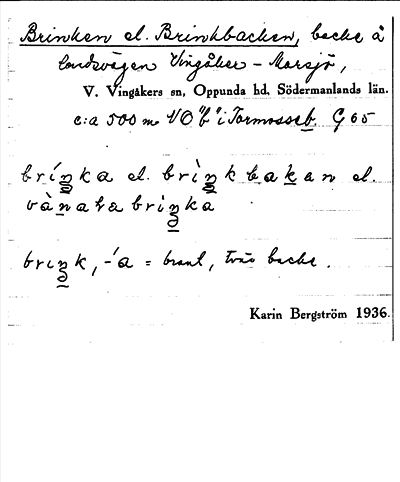 Brinken el. Brinkbacken, backe å
landsvägen Vingåker - Marsjö,
V. Vingåkers sn, Oppunda hd, Södermanlands län.
c:a 500 m VO "b" i Tormosseb. G 65
bríŋka el. brìŋkbakan el.
brìŋka
briŋk, -´a = brant, tvär backe.
Karin Bergström 1936.